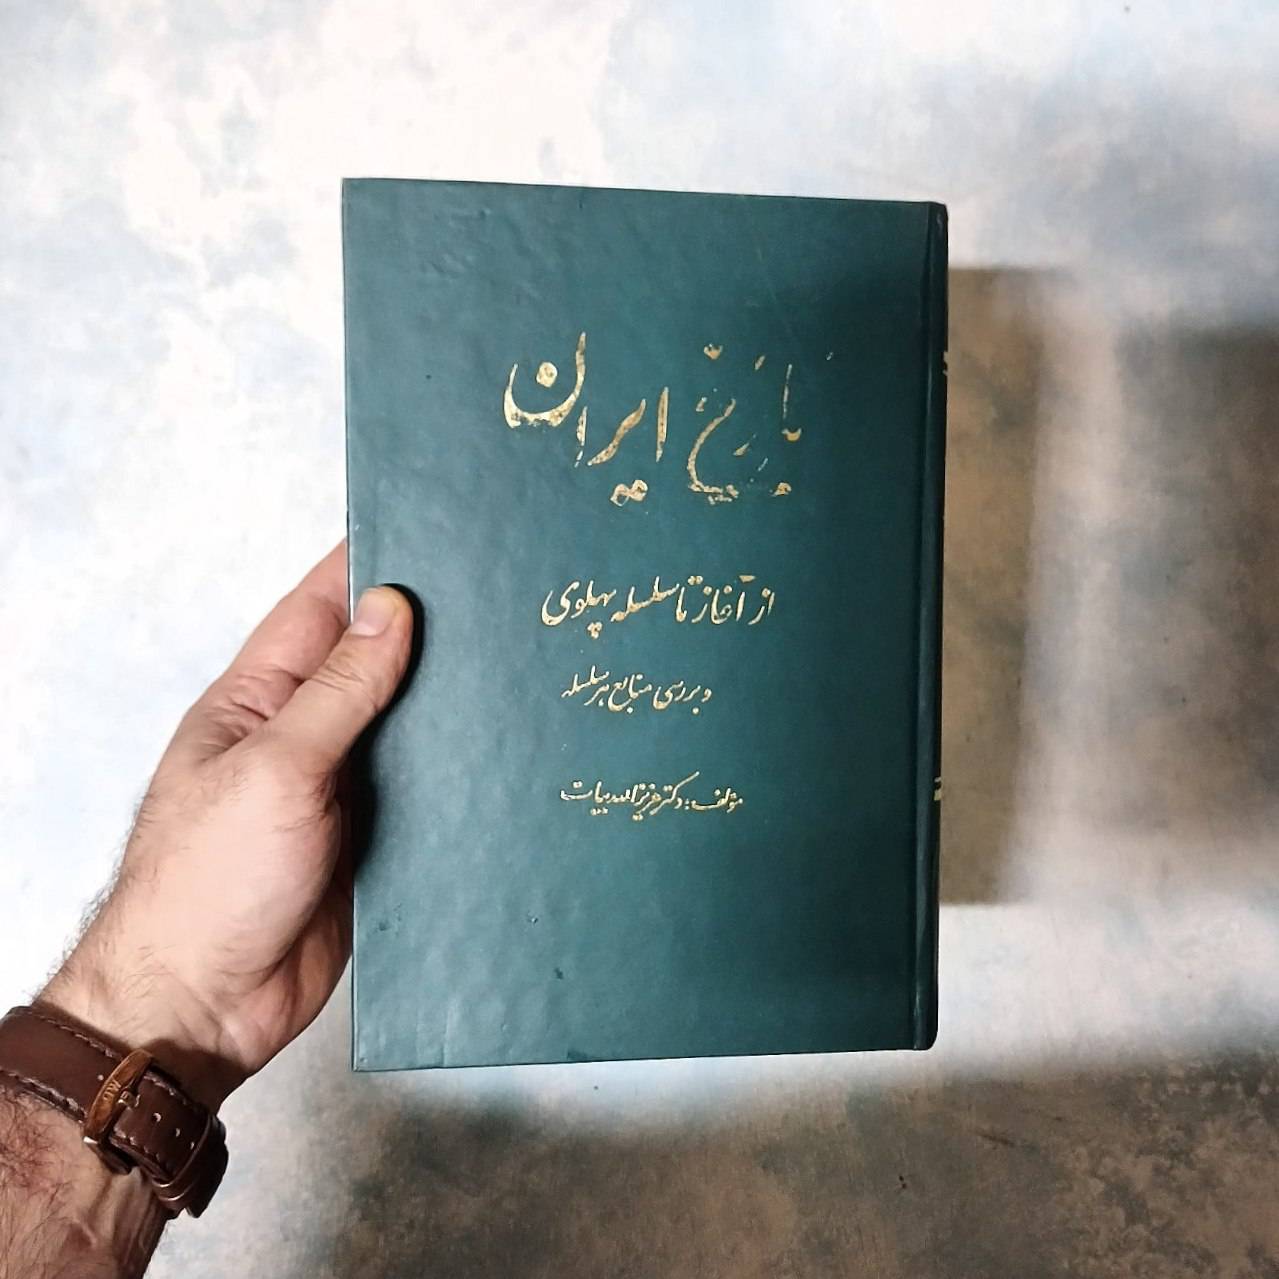 تاریخ ایران
از آغاز تا سلسله پهلوی
و بررسی منابع هر سلسله
مؤلف: دکتر عزیزالله بیات